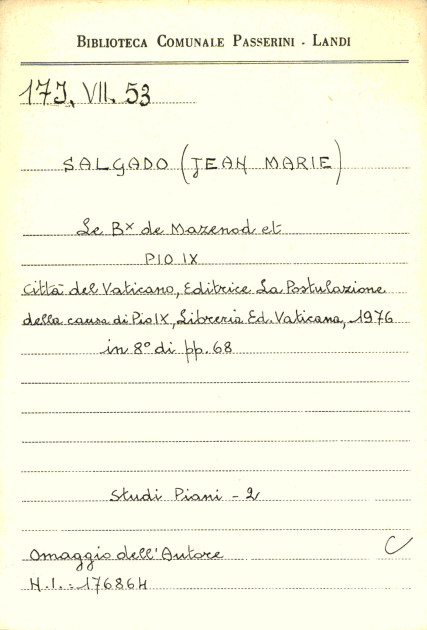 BIBLIOTECA COMUNALE PASSERINI - LANDI
17J. VII. 53
SALGADO (JEAN MARIE)
Le Bx de Mazenod et
PIO IX
Città del Vaticano, Editrice La Postulazione
della causa di Pio IX, Libreria Ed. Vaticana, 1976
in 8° di pp. 68
Studi Piani - 2
C
Omaggio dell'Autore
N.I.: 176864